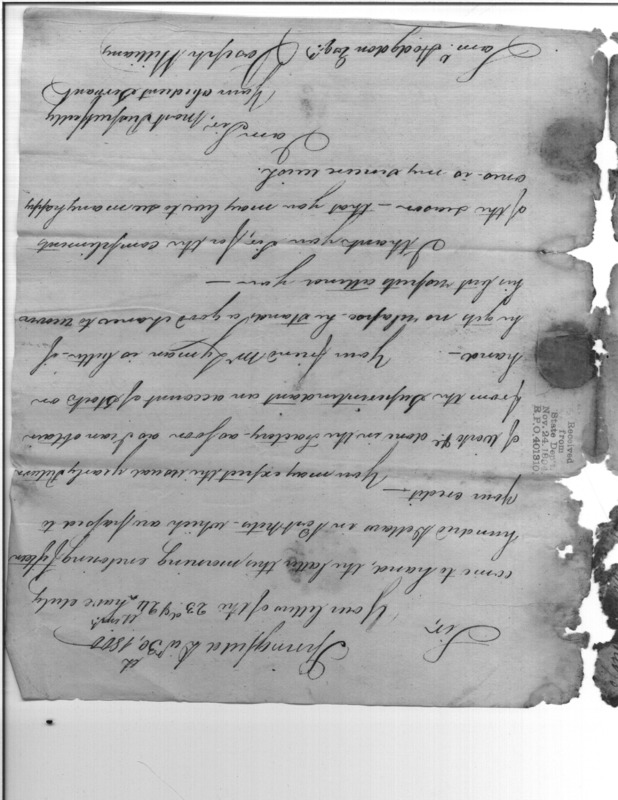 Springfield Decr 30, 1800
Sir,
Your letters of the 23 & 24 inst. have duly
come to hand, the latter this morning enclosing fifteen
hundred Dollars in Post Notes which are passed to
your credit — You may expect the usual yearly Return
of Work &c done in the Factory as soon as I can obtain
from the Superintendant an account of Stock on
hand — Your friend Mr Lyman is better - if
he gets no relapse he stands a good chance to recover
his best respects attend you —
I thank you Sir, for the compliments
of the season — that you may live to see many happy
ones is my sincere wish.
I am Sir, most Respectfully
Your obedient Servant
Joseph Williams
Sam. Hodgdon Esqr
Received
from
State Dep't.
Nov. 24,
R.P.O. 401810